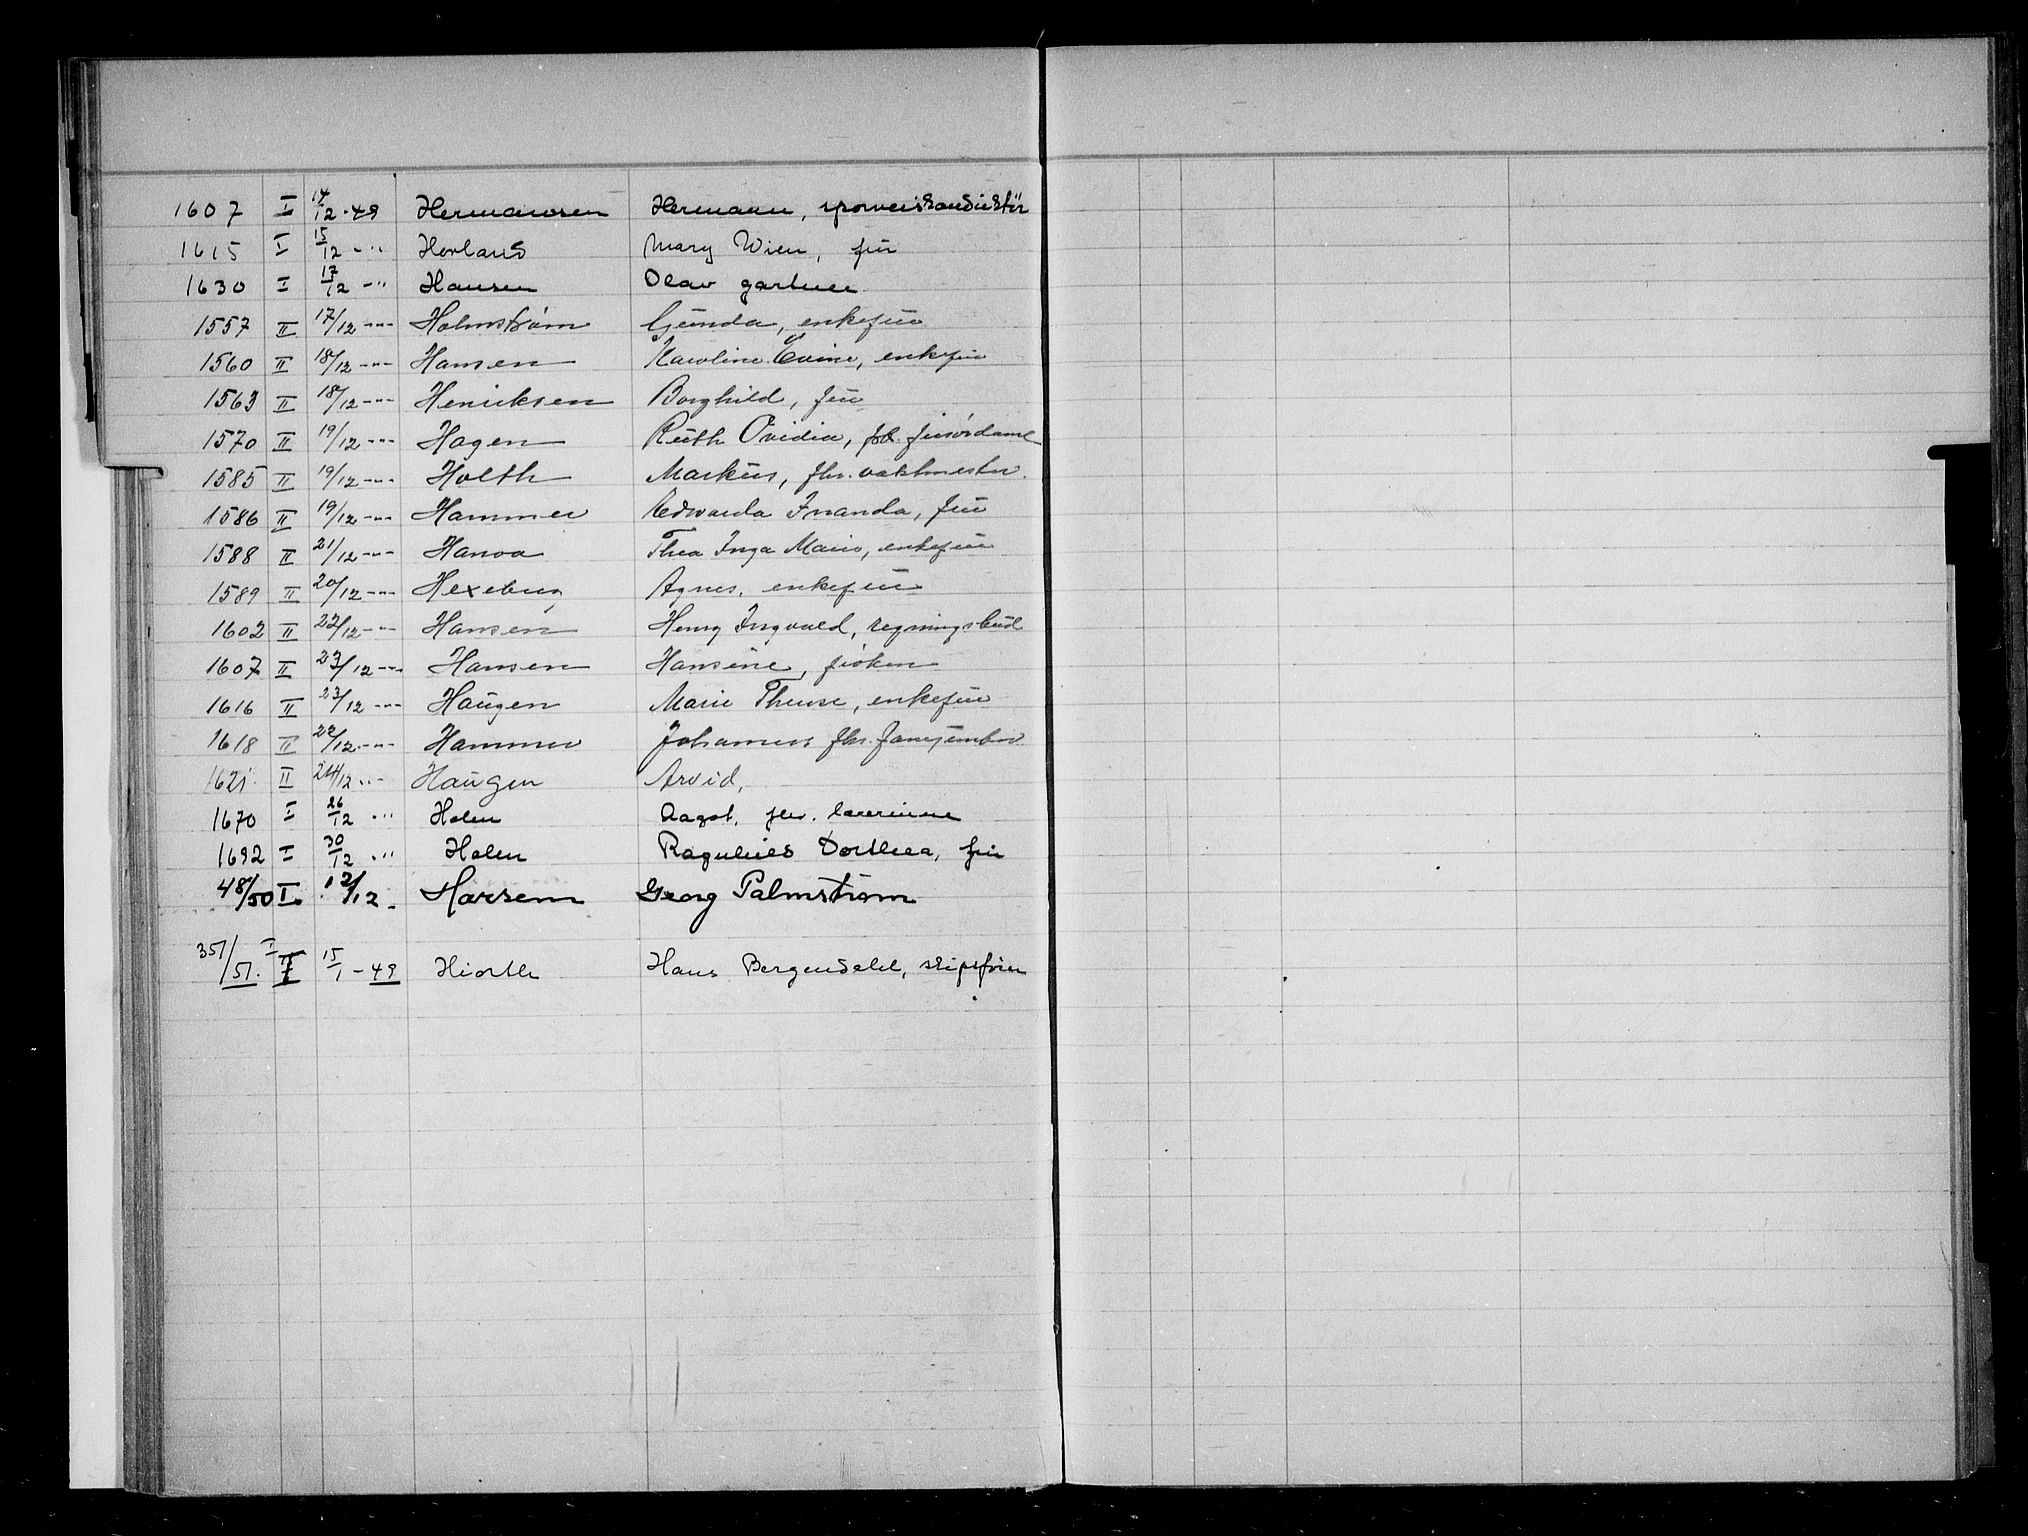 1607 I 14/12-49 Hermansen Hermann, sporveiskonduktør
1615 I 15/12 -"- Hovland Mary Wien, fru
1630 I 17/12 -"- Hansen Olav gartner
1557 II 17/12 -"- Holmstrøm Gunda, enkefru
1560 II 18/12 -"- Hansen Karoline Evine, enkefru
1563 II 18/12 -"- Henriksen Borghild, fru
1570 II 19/12 -"- Hagen Ruth Ovidia, frisørdame
1585 II 19/12 -"- Holth Markus, fhv. vaktmester.
1586 II 19/12 -"- Hammer Edvarda Inanda, fru
1588 II 21/12 -"- Hanoa Thea Inga Marie, enkefru
1589 II 20/12 -"- Hexeberg Agnes, enkefru
1602 II 22/12 -"- Hansen Henry Ingvald, regningsbud
1607 II 23/12 -"- Hansen Hansine, frøken
1616 II 23/12 -"- Haugen Marie Therese, enkefru
1618 II 22/12 -"- Hammer Johannes fhv.
1621 II 24/12 -"- Haugen Arvid,
1670 I 26/12 -"- Holen Aagot, fhv. lærerinne
1692 I 30/12 -"- Holen Ragnhild Dorthea, fru
48/50 I 12/12 - Harsem Georg Palmstrøm
351/51. I 15/1-49 Hiorth Hans Bergendahl, skipsfører